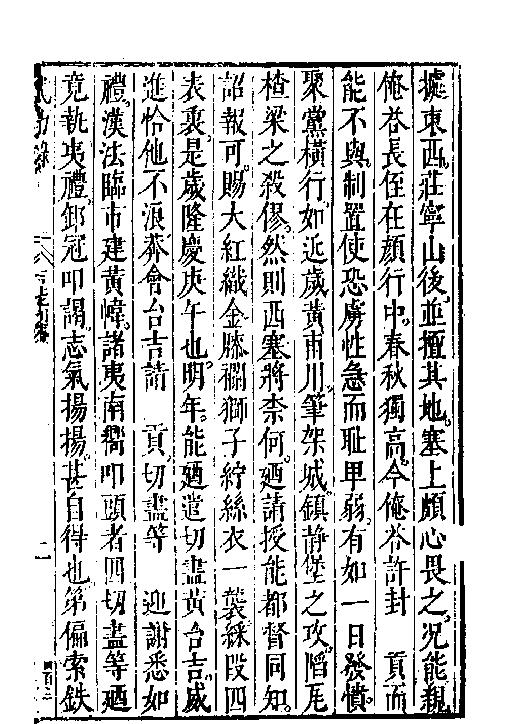 據東西莊寧山後並擅其地塞上頗心畏之况能親
俺荅長侄在顔行中春秋獨高今俺荅許封　貢而
能不與制置使恐虜性急而耻甲弱有如一日發憤
聚黨橫行如近歲黃甫川筆架城鎮静堡之攻陷尾
楂梁之殺僇然則西塞將柰何廼請授能都督同知
詔報可賜大紅織金膝襴獅子紵絲衣一襲綵段四
表裏是歲隆慶庚午也明年能廼遣切盡黃台吉威
進恰他不浪莽會台吉請　貢切盡等　迎謝悉如
禮漢法臨市建黃幃諸夷南嚮叩頭者四切盡等廼
竟執夷禮卸冠叩謁志氣揚揚甚自得也第偏索鉄
武功錄
二